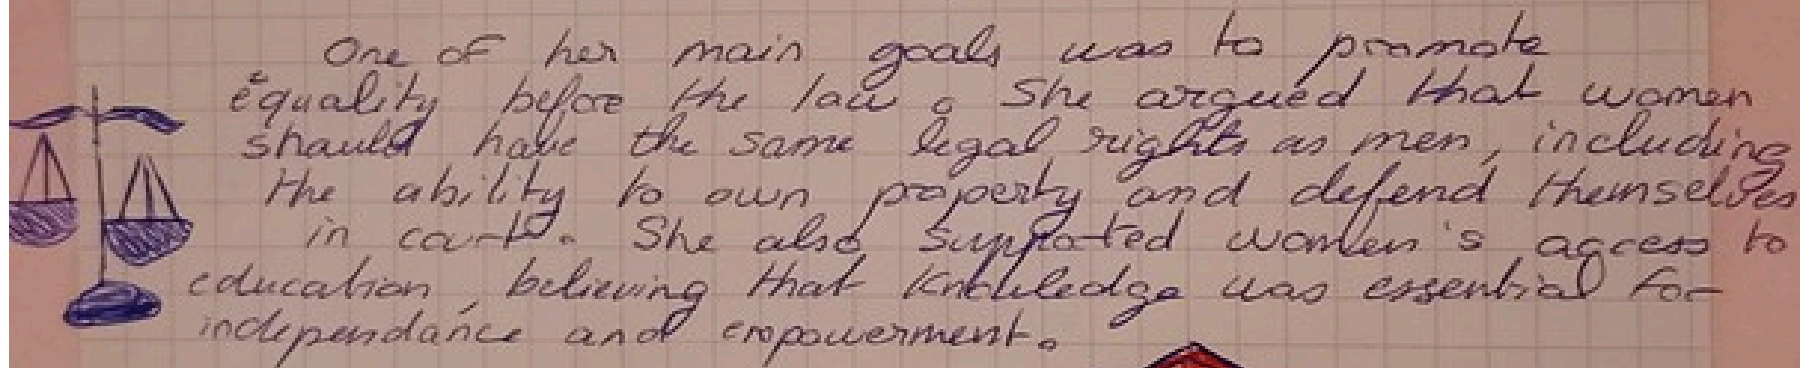 One of her main goals was to promote
equality before the law. She argued that women
should have the same legal rights as men, including
the ability to own property and defend themselves
in court. She also supported women's access to
education, believing that Knowledge was essential for
independance and empowerment.